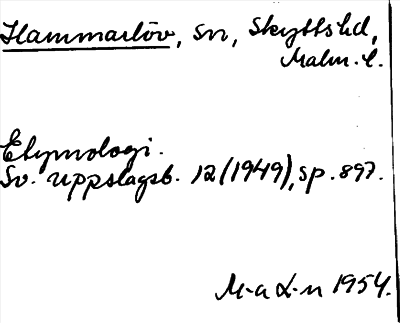 Hammarlöv, sn, Skytts hd,
Malm. l.
Etymologi.
Sv. uppslagsb. 12 (1949), sp. 897.
M-a L-n 1954.